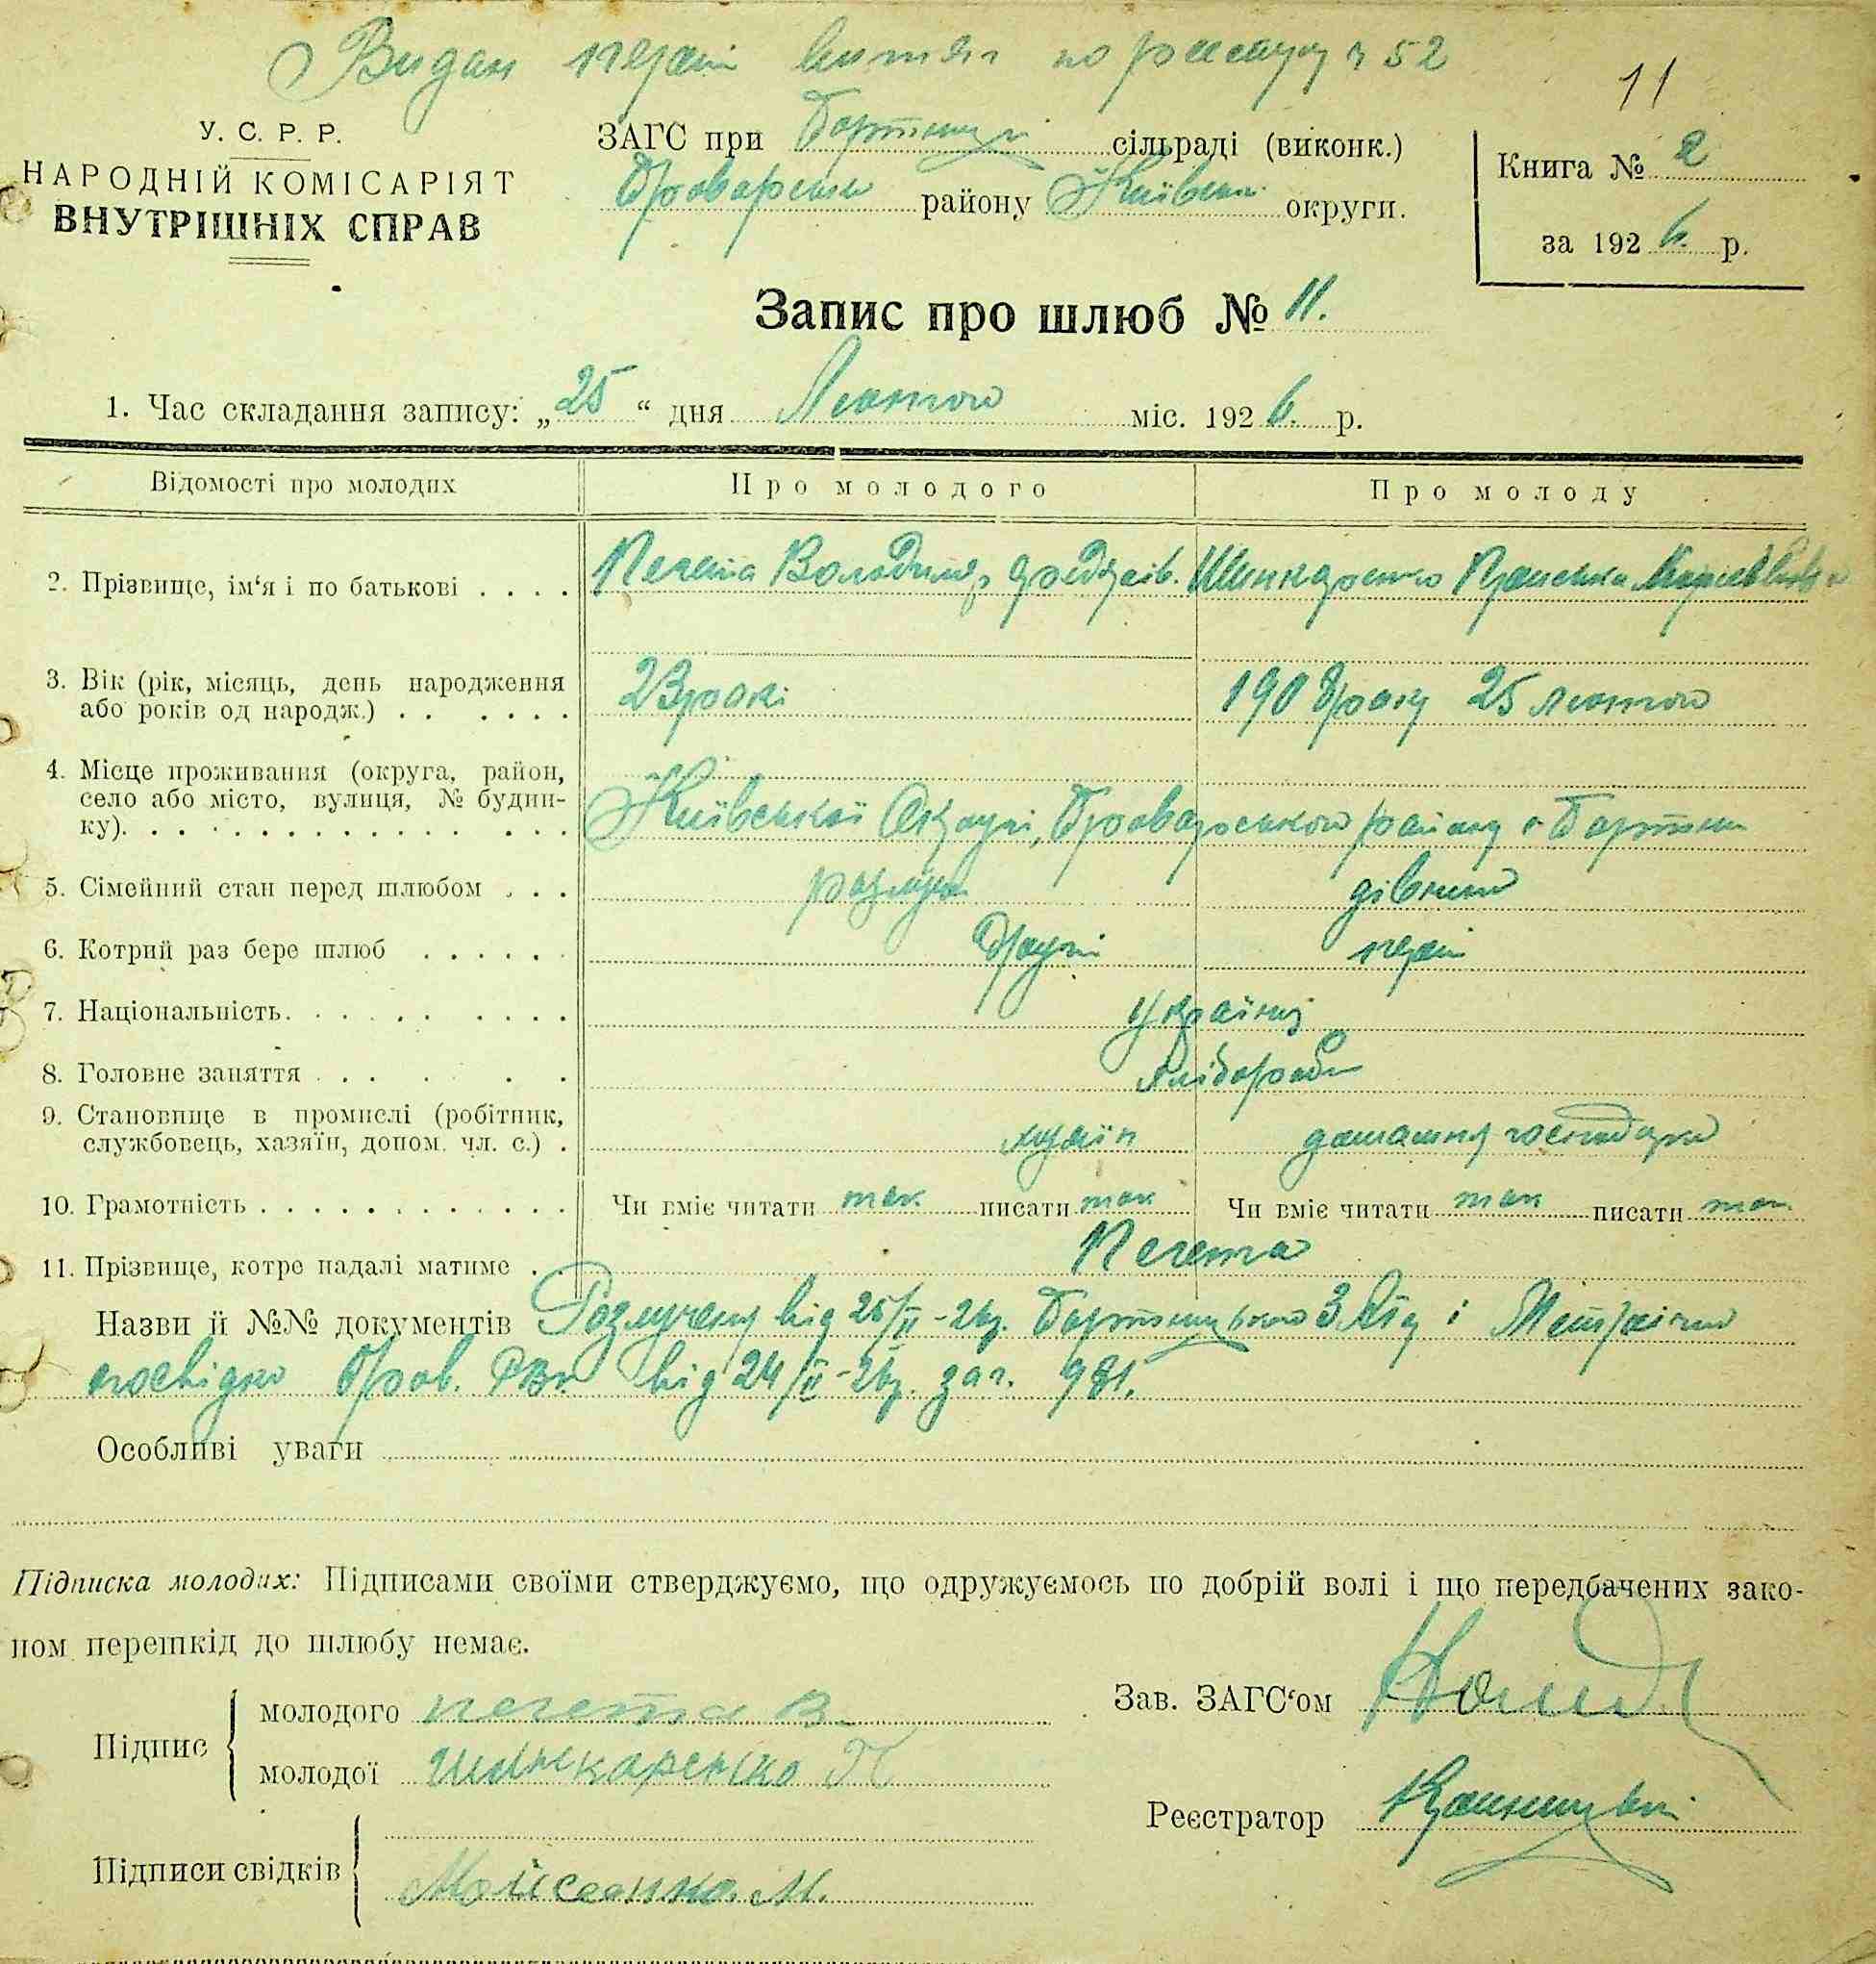 Видан перший витяг по реєстру № 52
11
У. С. Р. Р.
НАРОДНІЙ КОМІСАРІЯТ
ВНУТРІШНІХ СПРАВ
ЗАГС при сільраді (виконк.)
району округи.
Книга № 2
за 1926. р.
Запис про шлюб № 11.
1. Час складання запису: „25“ дня Лютого міс. 1926. р.
Відомості про молодих
Про молодого
Про молоду
2. Прізвище, ім‘я і по батькові
Печета Володимир
Шинкаренко
3. Вік (рік, місяць, день народження
або років од народж.)
23 роки
1908 року 25 лютого
4. Місце проживання (округа, район,
село або місто, вулиця, № будин-
ку).
Київської Округи, Броварського району с. Бортничі
5. Сімейний стан перед шлюбом
дівчина
6. Котрий раз бере шлюб
другий
перший
7. Національність
8. Головне заняття
Хлібороби
9. Становище в промислі (робітник,
службовець, хазяїн, допом. чл. с.)
хазяїн
домашня господарка
10. Грамотність
Чи вміє читати так писати так
Чи вміє читати так писати так
11. Прізвище, котре надалі матиме
Печета
Назви й №№ документів від 25/II-26р. і
від 24/II-26р. за ч. 981.
Особливі уваги
Підписка молодих: Підписами своїми стверджуємо, що одружуємось по добрій волі і що передбачених зако-
ном перешкід до шлюбу немає.
Підпис
молодого печета В.
молодої шинкаренко П
Зав. ЗАГС‘ом
Реєстратор
Підписи свідків
Мойсеенко М.